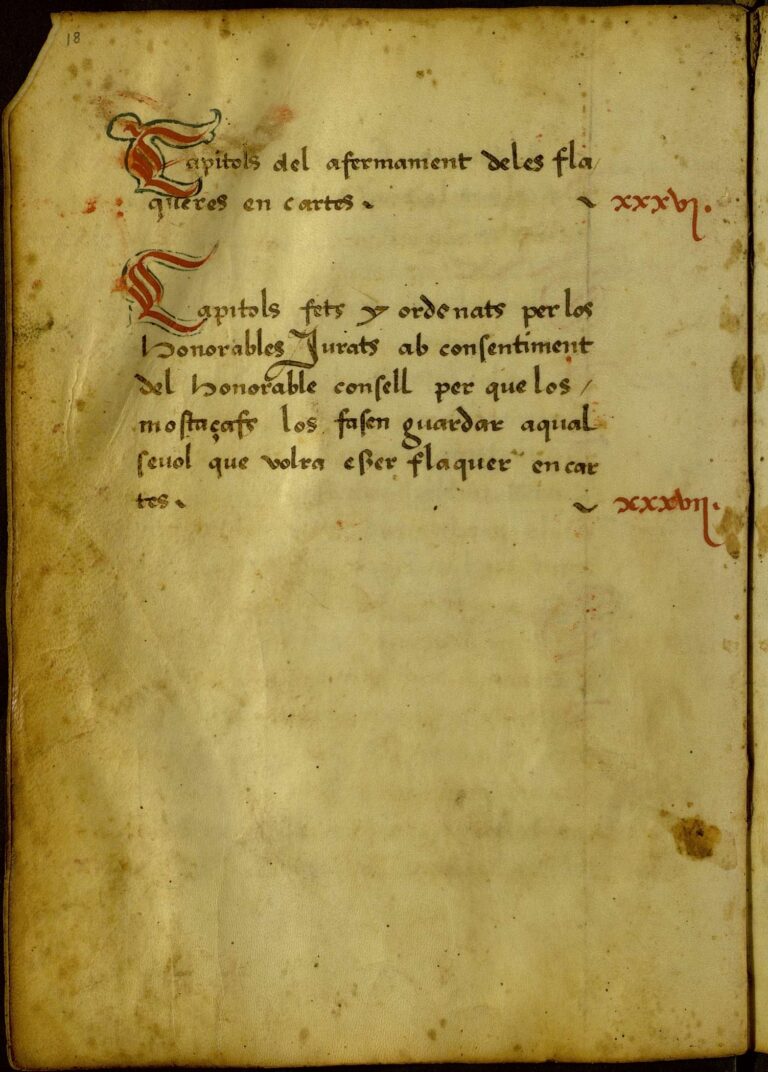 18
Capitols del afermament deles fla/
queres en cartes. xxxvj.
Capitols fets y ordenats per los
honorables Jurats ab consentiment
del honorable consell per que los /
mostaçafs los fasen guardar aqual
sevol que volra esser flaquer en car
tes. xxxvij.